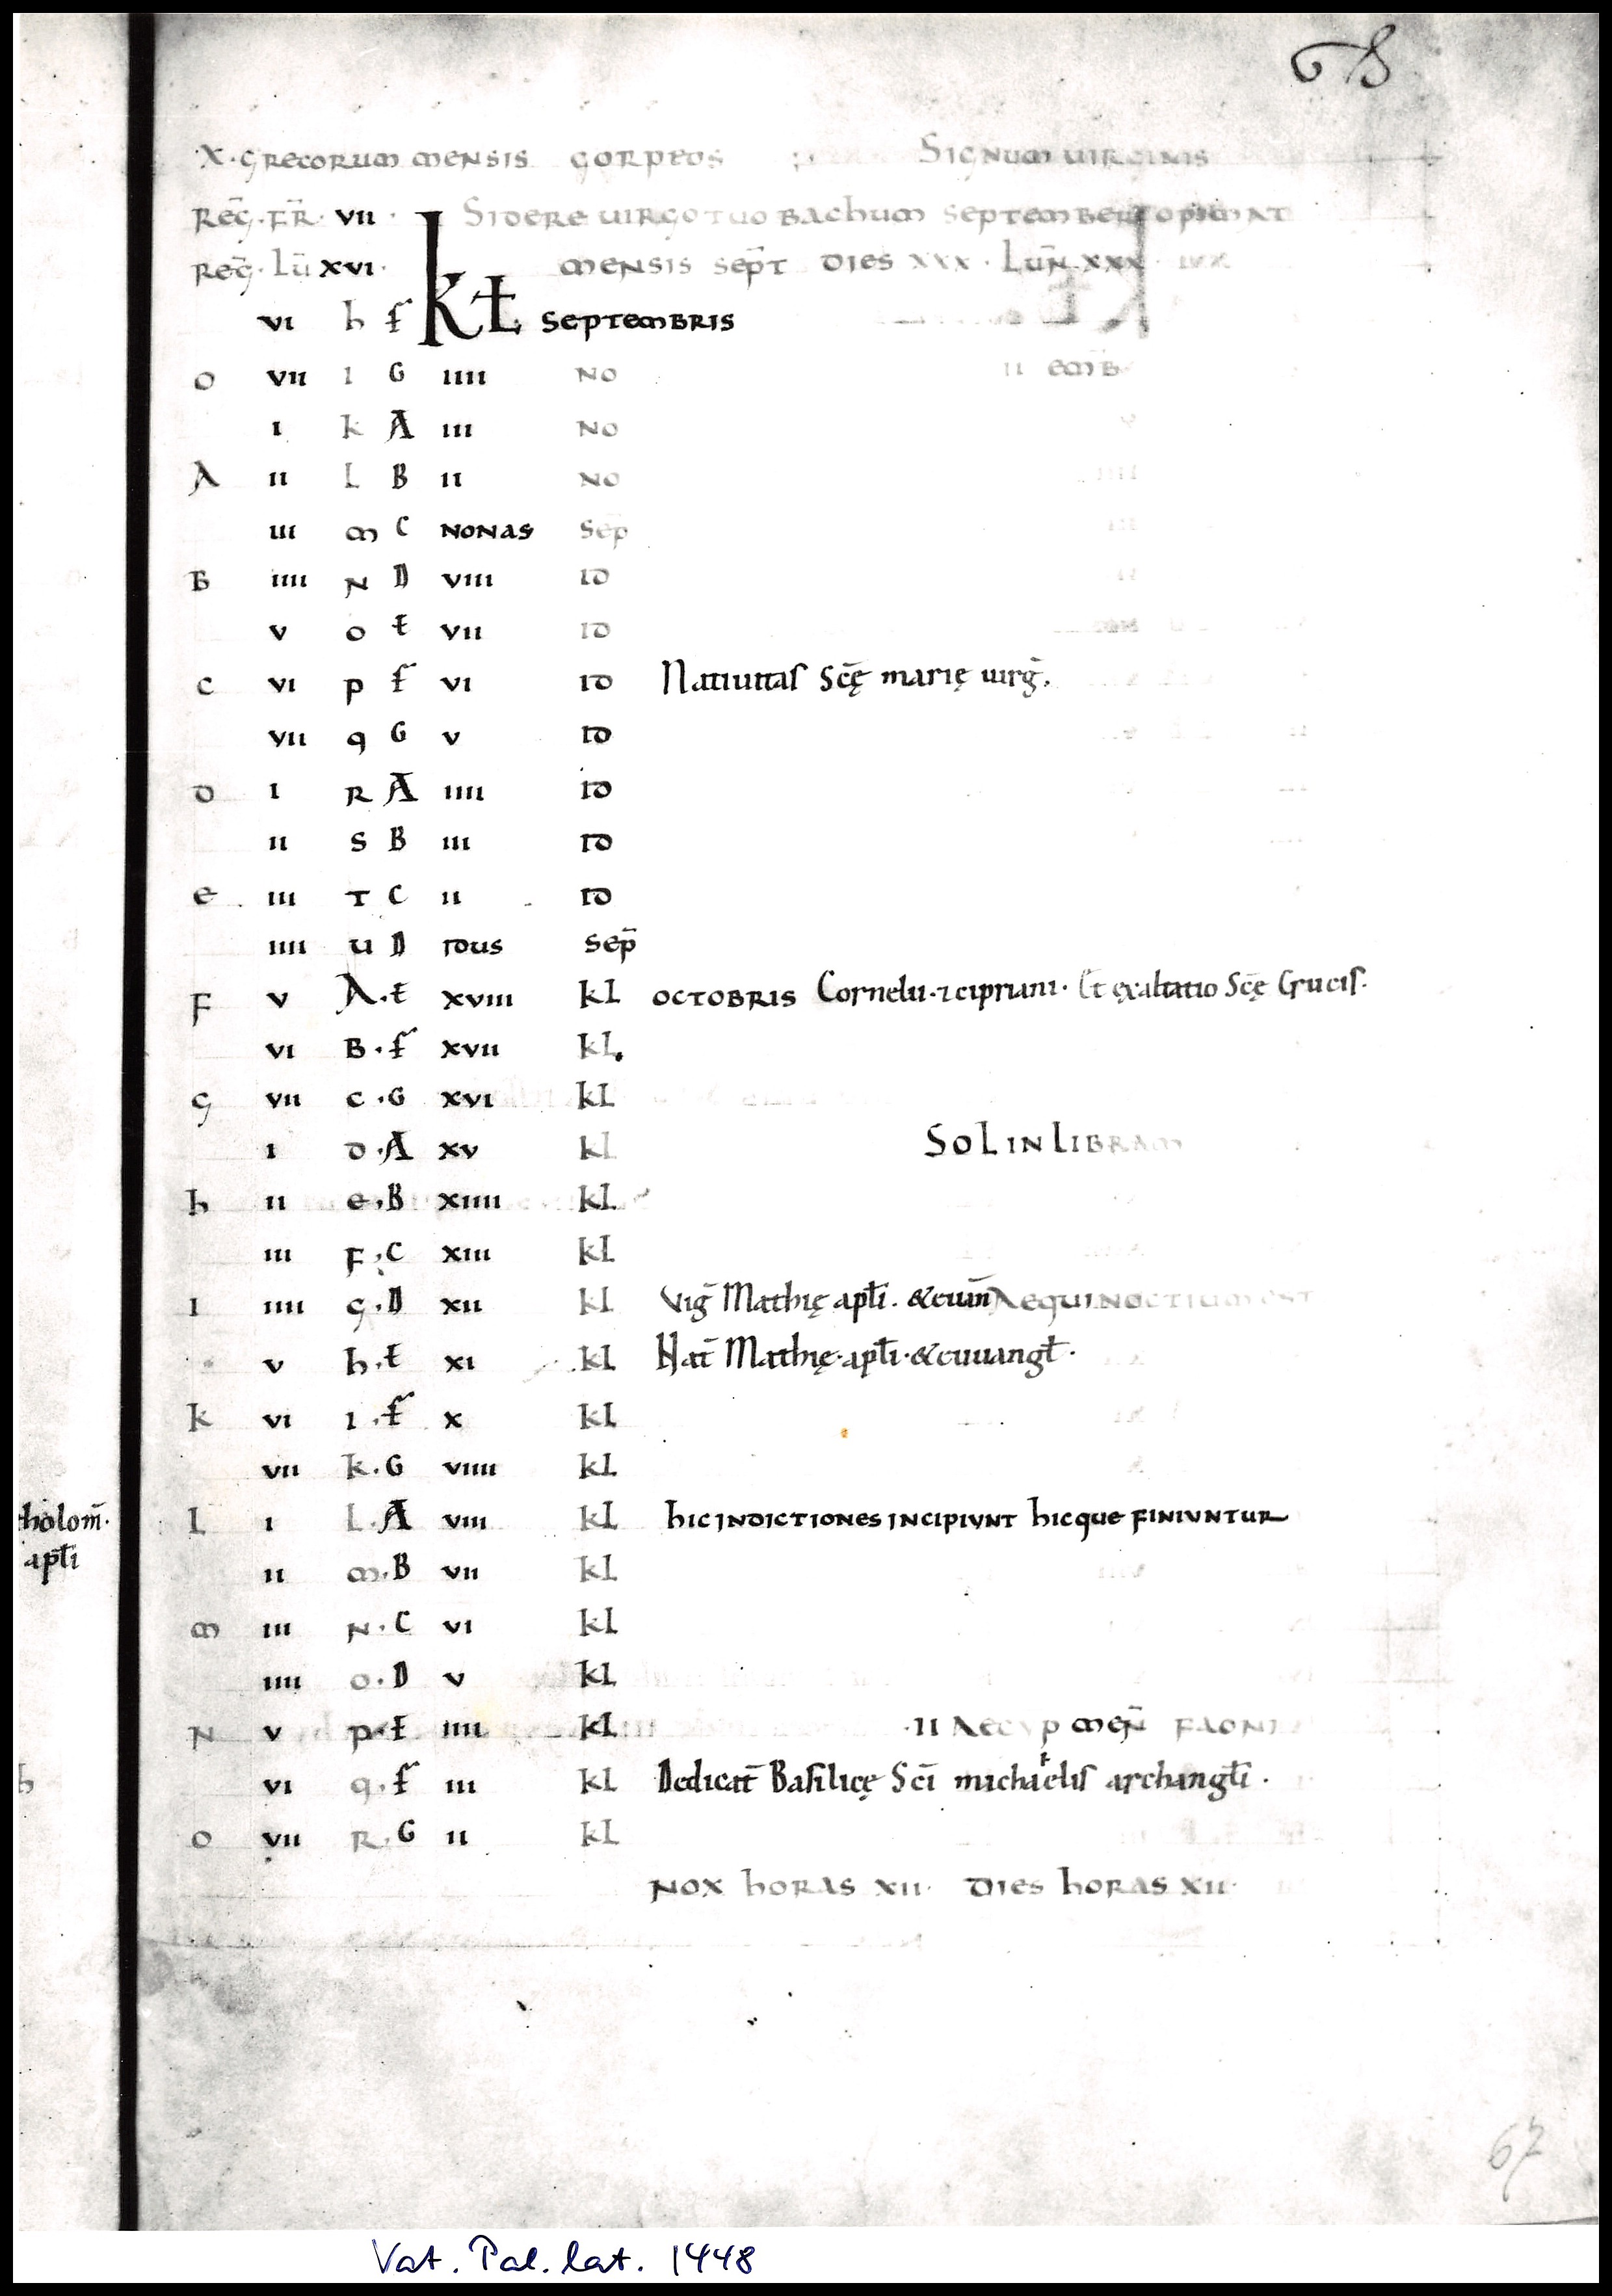 68
X. GRECORUM MENSIS GORPEOS SIGNUM UIRGINIS
REḠ. FR̄. VII. SIDERE UIRGO TUO BACHUM SEPTEMBER OPIMAT
REḠ. LŪ XVI. MENSIS SEP̄T DIES XXX. LUN̄. XXX
VI h F Kƚ SEPTEMBRIS
O VII I G IIII NO
I K A III NO
A II L B II NO
III M C NONAS SEP̄
B IIII N D VIII ID
V O E VII ID
C VI P F VI ID Natiuitas Sc̄ę marię uirḡ.
VII Q G V ID
D I R A IIII ID
II S B III ID
E III T C II ID
IIII U D IDUS SEP̄
F V A. E XVIII KL OCTOBRIS Cornelii. ⁊ cipriani. Et ęxaltatio Sc̄ę Crucis.
VI B. F XVII KL.
G VII C. G XVI KL
I D. A XV KL SOL IN LIBRAM
h II E. B XIIII KL
III F. C XIII KL
I IIII G. D XII KL Viḡ Mathię apƚi. & euan̄ AEQUINOCTIUM
V h. E XI KL Nat̄ Mathię. apƚi. & euuangƚ.
K VI I. F X KL
VII K. G VIIII KL
L I L. A VIII KL hIC INDICTIONES INCIPIVNT hICQUE FINIVNTUR
II M. B VII KL
M III N. C VI KL
IIII O. D V KL
N V P. E IIII KL II AEGYP MEN̄ FAONI
VI Q. F III KL Dedicat̄ Basilicę Sc̄i michaelis archangƚi.
O VII R. G II KL
NOX hORAS XII. DIES hORAS XII.
tholom̄.
apƚi
67
Vat. Pal. lat. 1448